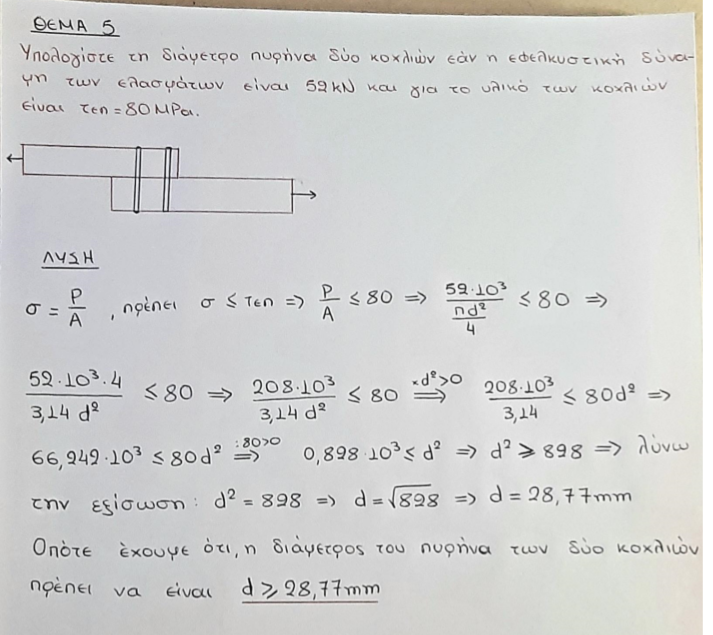 ΘΕΜΑ 5
Υπολογίστε τη διάμετρο πυρήνα δύο κοχλιών εάν η εφελκυστική δύνα-
μη των ελασμάτων είναι 52kN και για το υλικό των κοχλιών
είναι τεπ = 80 MPa.
ΛΥΣΗ
σ = P/A , πρέπει σ ≤ τεπ => P/A ≤ 80 => 52·10³/(πd²/4) ≤ 80 =>
52·10³·4/3,14 d² ≤ 80 => 208·10³/3,14 d² ≤ 80 =(×d²>0)=> 208·10³/3,14 ≤ 80d² =>
66,242·10³ ≤ 80d² =(:80>0)=> 0,828·10³ ≤ d² => d² ≥ 828 => λύνω
την εξίσωση: d² = 828 => d = √828 => d = 28,77mm
Οπότε έχουμε ότι, η διάμετρος του πυρήνα των δύο κοχλιών
πρέπει να είναι d ≥ 28,77mm